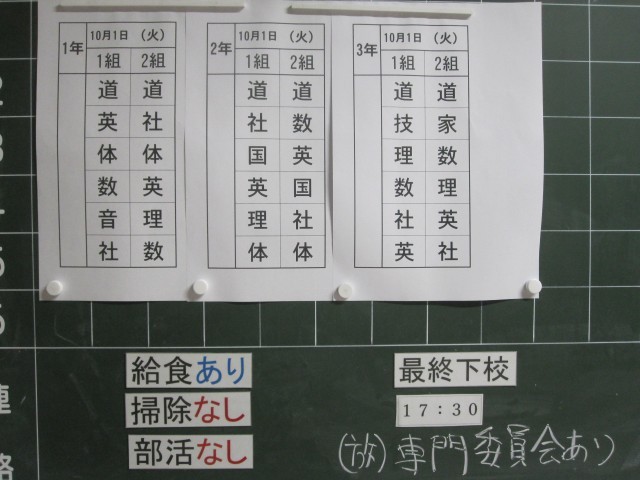 1年 10月1日 (火)
1組 2組
道 道
英 社
体 体
数 英
音 理
社 数
2年 10月1日 (火)
1組 2組
道 道
社 数
国 英
英 国
理 社
体 体
3年 10月1日 (火)
1組 2組
道 道
技 家
理 数
数 理
社 英
英 社
給食あり
掃除なし
部活なし
最終下校
17:30
(放)専門委員会あり